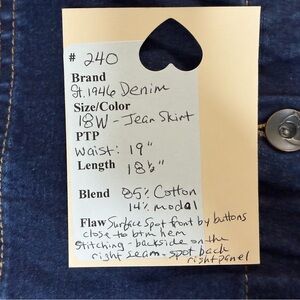 # 240
Brand
St. 1946 Denim
Size/Color
18W - Jean Skirt
PTP
Waist: 19"
Length 18½"
Blend 85% Cotton
14% modal
Flaw Surface Spot front by buttons
close to btm hem
Stitching - backside on the
right seam - spot back
right panel